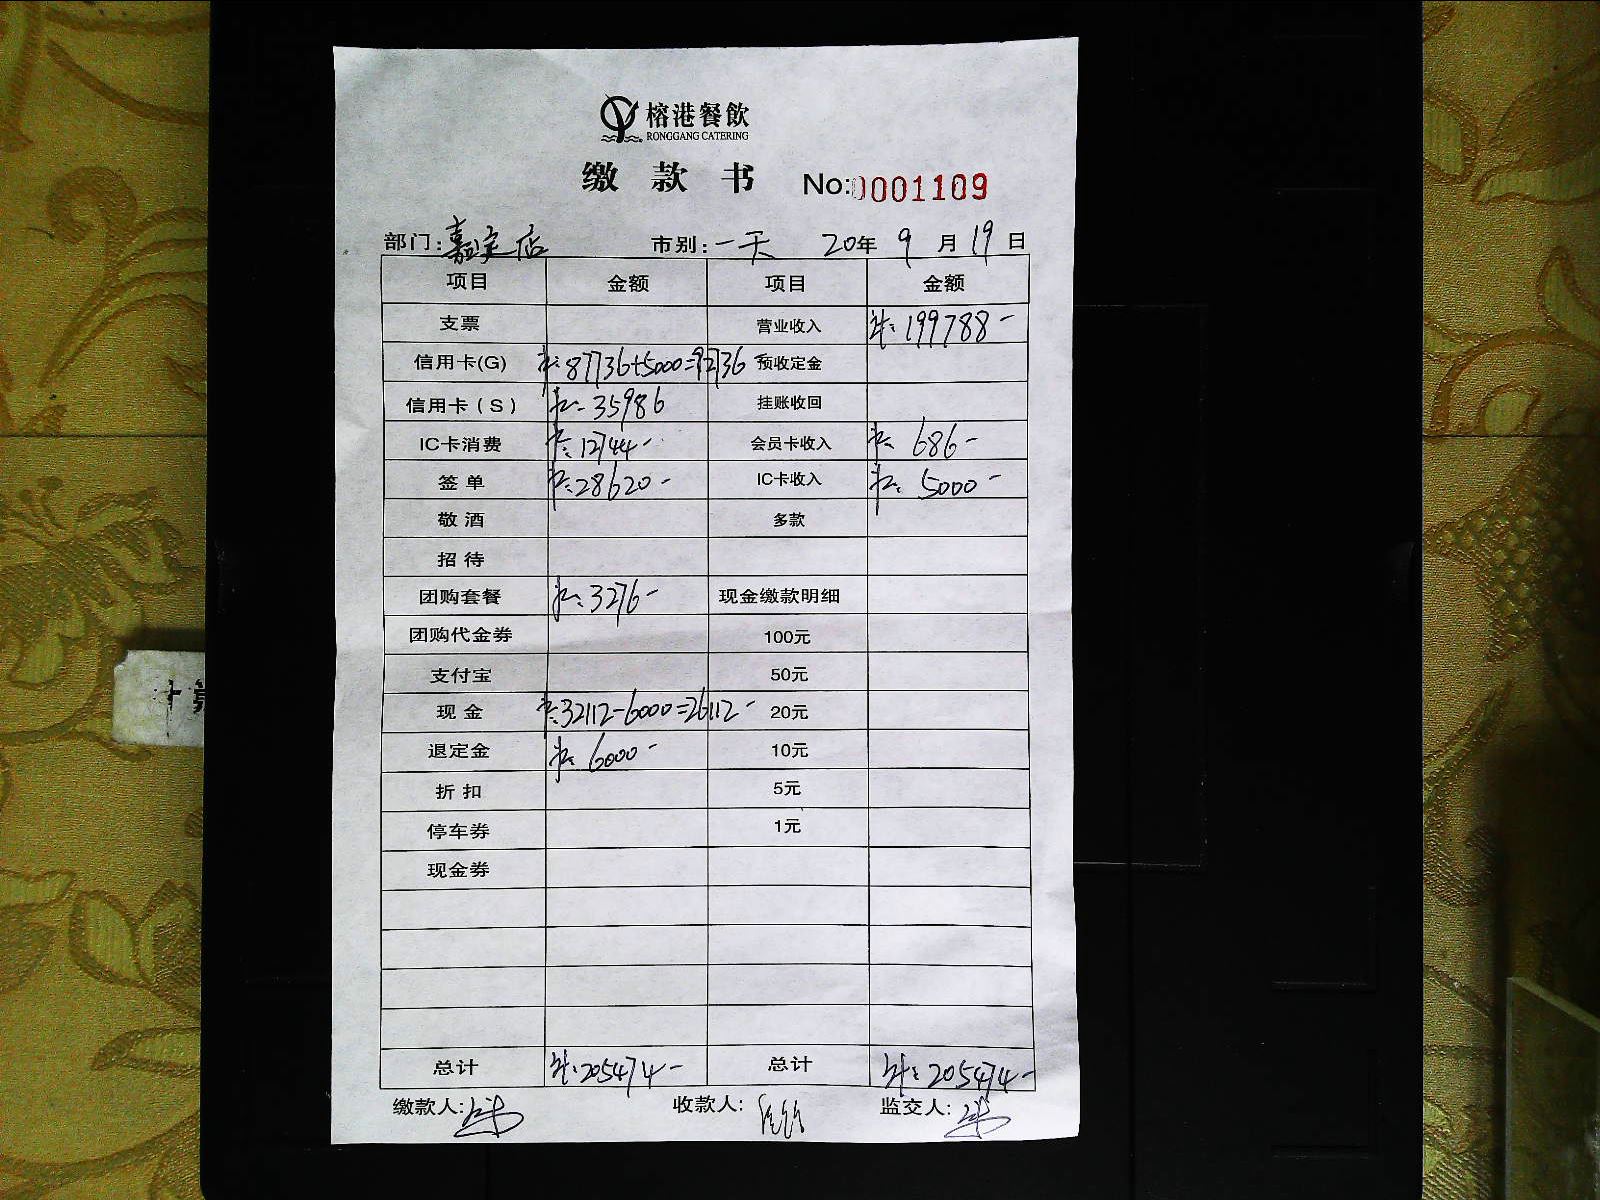 榕港餐飲
RONGGANG CATERING
缴 款 书 No:0001109
部门:嘉定店 市别:一天 20年 9 月 19 日
项目 金额 项目 金额
支票 营业收入 计:199788-
信用卡(G) 87736+5000=92736 预收定金
信用卡(S) 35986 挂账收回
IC卡消费 12744- 会员卡收入 686-
签单 28620- IC卡收入 5000-
敬酒 多款
招待
团购套餐 3276- 现金缴款明细
团购代金券 100元
支付宝 50元
现金 32112-6000=26112- 20元
退定金 6000- 10元
折扣 5元
停车券 1元
现金券
总计 计:205474- 总计 计:205474-
缴款人: 收款人: 监交人: